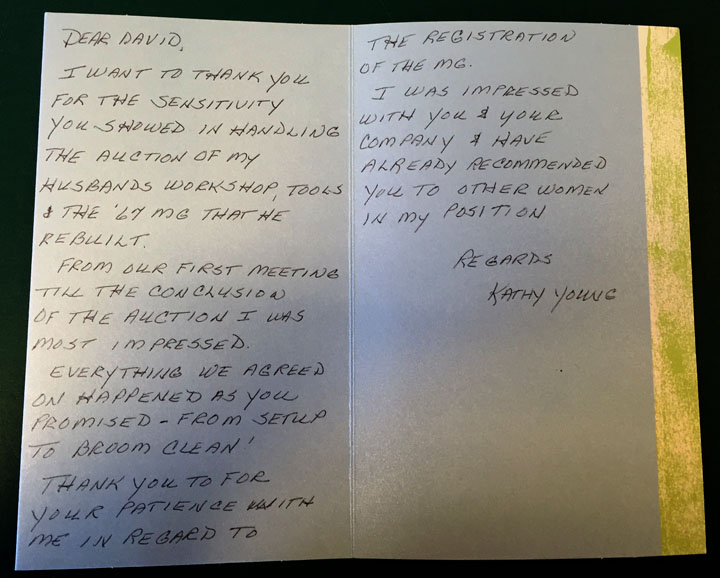 DEAR DAVID,
I WANT TO THANK YOU
FOR THE SENSITIVITY
YOU SHOWED IN HANDLING
THE AUCTION OF MY
HUSBANDS WORKSHOP, TOOLS
& THE '67 MG THAT HE
REBUILT.
FROM OUR FIRST MEETING
TILL THE CONCLUSION
OF THE AUCTION I WAS
MOST IMPRESSED.
EVERYTHING WE AGREED
ON HAPPENED AS YOU
PROMISED - FROM SETUP
TO BROOM CLEAN!
THANK YOU TO FOR
YOUR PATIENCE WITH
ME IN REGARD TO
THE REGISTRATION
OF THE MG.
I WAS IMPRESSED
WITH YOU & YOUR
COMPANY & HAVE
ALREADY RECOMMENDED
YOU TO OTHER WOMEN
IN MY POSITION
REGARDS
KATHY YOUNG